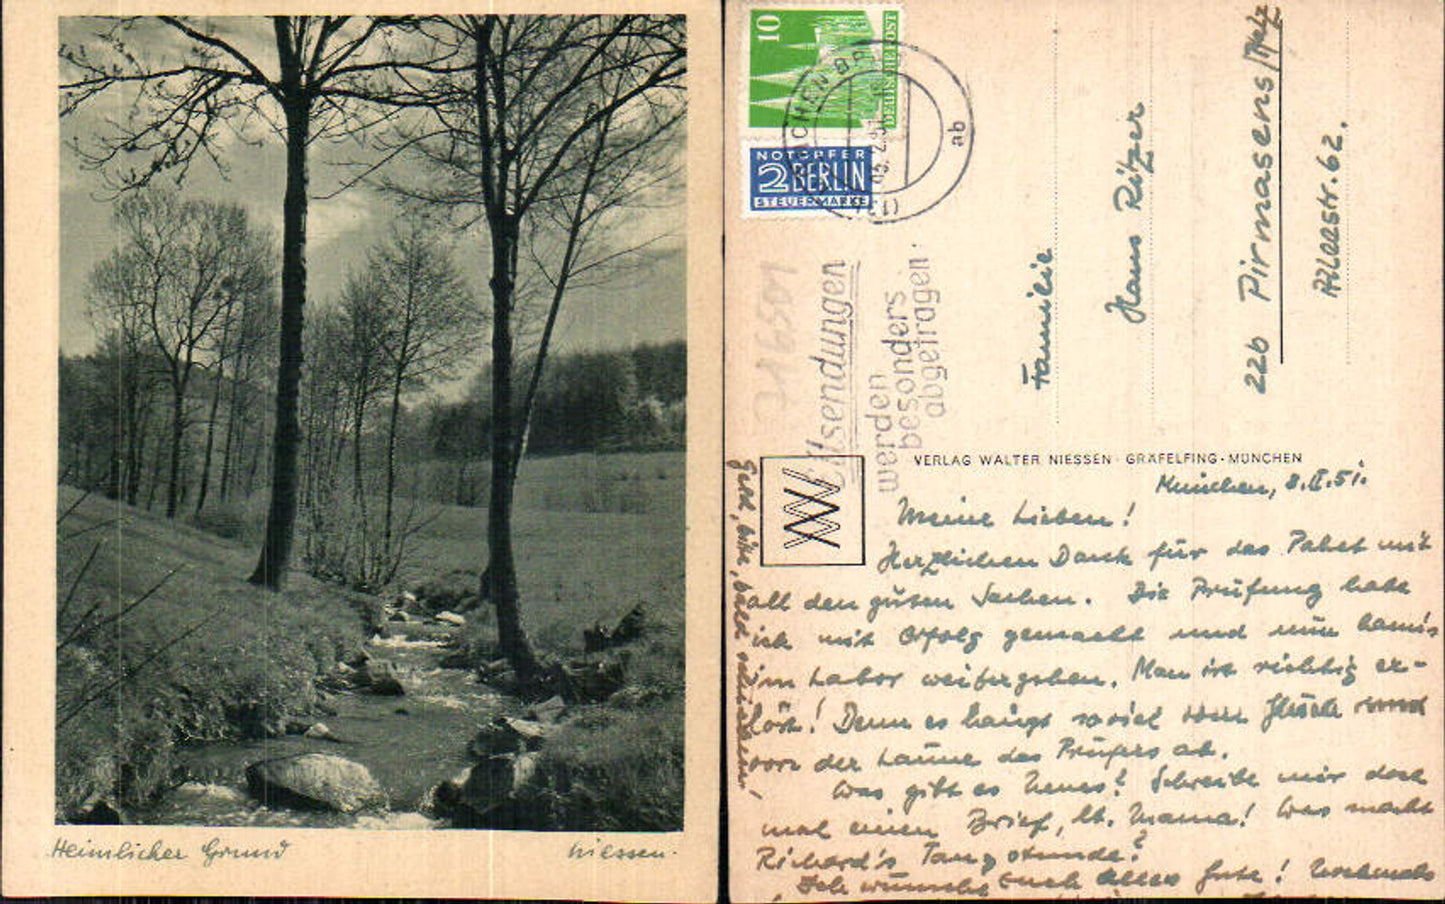 Heimlicher Grund
Niessen.
10
DEUTSCHE POST
NOTOPFER
2 BERLIN
STEUERMARKE
ab
Eilsendungen
werden
besonders
abgetragen
Familie
Hans Rötzer
22b Pirmasens/Pfalz
Alleestr. 62.
VERLAG WALTER NIESSEN · GRÄFELFING - MÜNCHEN
München, 8.II.51.
Meine Lieben!
Herzlichen Dank für das Paket mit
all den guten Sachen. Die Prüfung habe
ich mit Erfolg gemacht und nun kann's
im Labor weitergehen. Man ist richtig er-
löst! Denn es hängt soviel vom Glück und
von der Laune des Prüfers ab.
Was gibt es Neues? Schreibe mir doch
mal einen Brief, lb. Mama! Was macht
Richard's Tanzstunde?
Ich wünsche Euch alles Gute! Nochmals
Geld, bitte, bald schicken!